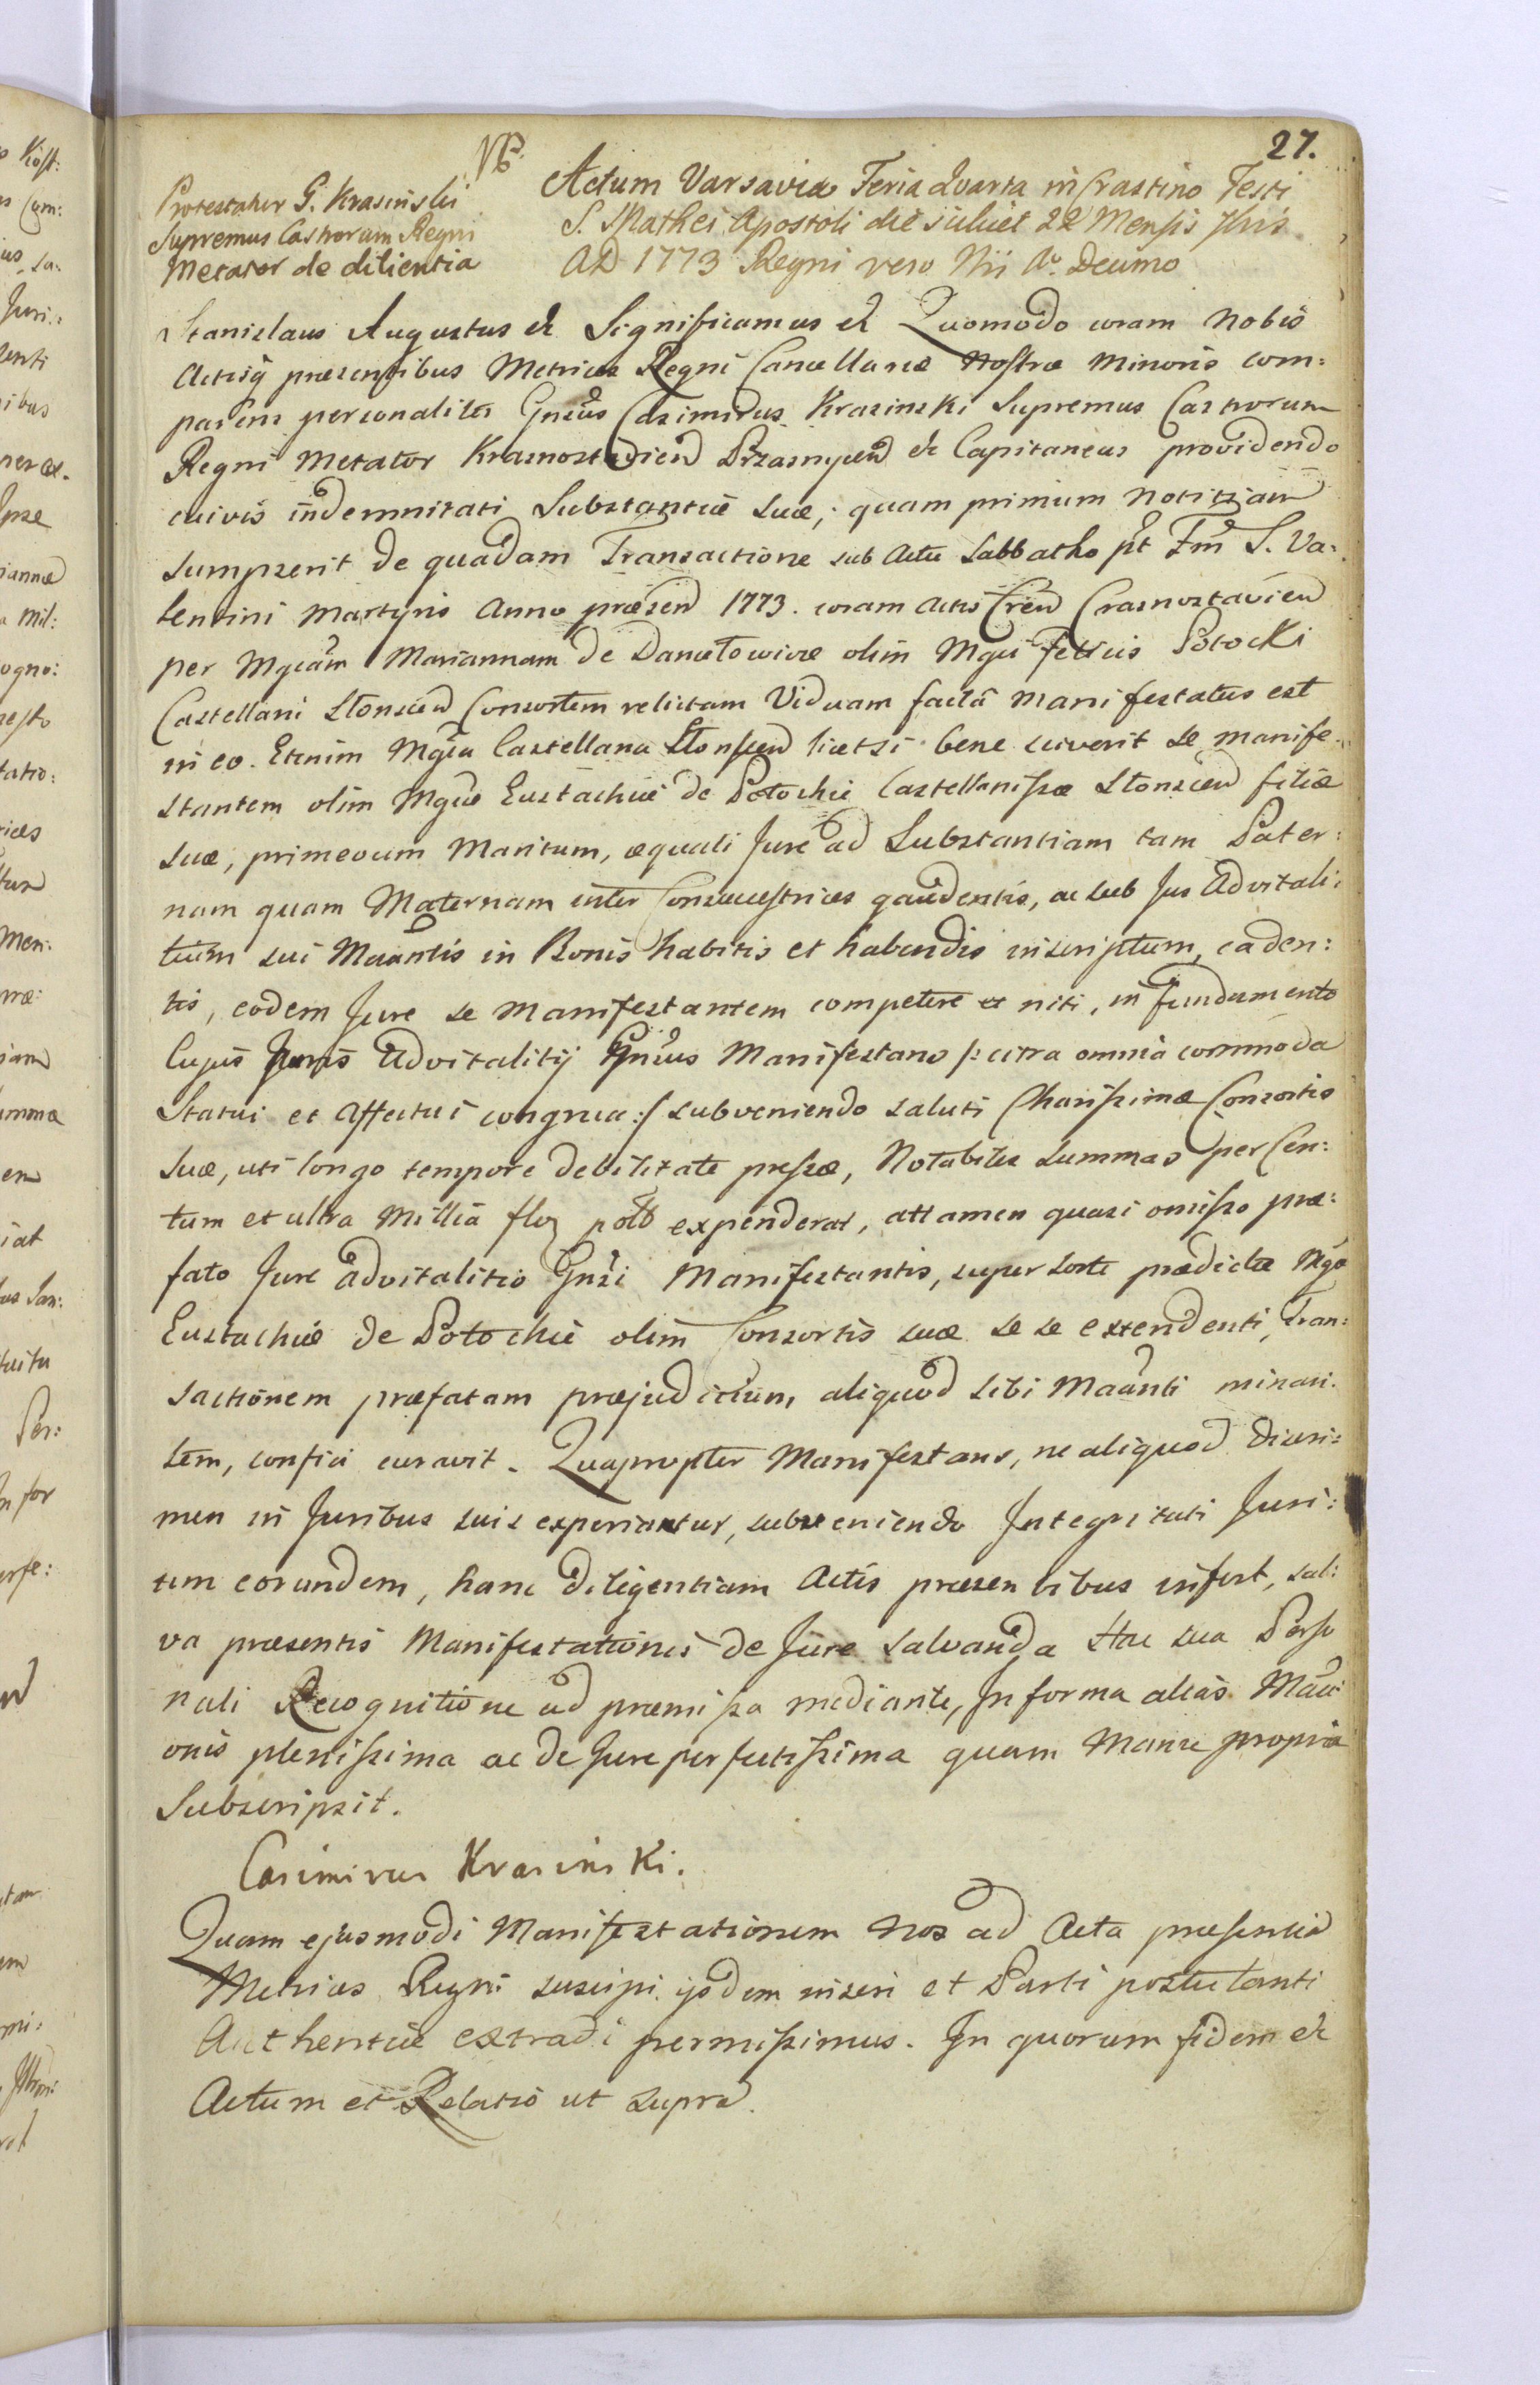 27.
Protestatur G. Krasinski
Supremus Castrorum Regni
Metator de dilientia
Actum Varsaviæ Feria Quarta in Crastino Festi
S. Mathei Apostoli die scilicet 22 Mensis 7bris
AD 1773 Regni vero Nri Ao Decimo
Stanislaus Augustus &c Significamus &c Quomodo coram Nobis
Actisq præsentibus Metrices Regni Cancellariæ Nostræ Minoris com:
parens personaliter Gnsus Casimirus Krasinski Supremus Castrorum
Regni Metator Krasnostavien Przasnyen &c Capitaneus providendo
cuivis indemnitati Substantiæ suæ, quam primum Notitiam
sumpserit de quadam Transactione sub Actu Sabbatho pt Fm S. Va:
lentini Martyris Anno præsen 1773. coram Actis Cren Crasnostavien
per Mgcam Mariannam de Daniłowicze olim Mgci Felicis Potocki
Castellani Słonscen Consortem relictam Viduam facta manifestatus est
in eo. Etenim Mgca Castellana Słonscen licetsi bene sciverit se manife:
stantem olim Mgcæ Eustachiæ de Potockie Castellanissæ Słonscen filiæ
suæ, primevum Maritum, æquali Jure ad Substantiam tam Pater:
nam quam Maternam inter Consuccestrices gaudentis, ac sub Jus Advitali:
tium sui Maantis in Bonis habitis et habendis inscriptum, caden:
tis, eodem Jure se Manifestantem competere et niti, in fundamento
Cujus Juris Advitalitij Gnsus Manifestans /: citra omnia commoda
Statui et Affectui congrua :/ subveniendo saluti Charissimæ Consortis
suæ, uti longo tempore debilitate pressæ, Notabiles summas per Cen:
tum et ultra Millia flor polt expenderat, attamen quasi omisso præ:
fato Jure advitalitio Gnsi Manifestantis, super sorte prædictæ Mgcæ
Eustachiæ de Potockie olim Consortis suæ se se extendenti, Tran:
sactionem præfatam præjudicium aliquod sibi Maanti minari:
tem, confici curavit. Quapropter Manifestans, ne aliquod discri:
men in Juribus suis experiantur, subveniendo Integritati Juri:
um eorundem, hanc diligentiam Actis præsentibus infert, sal:
va præsentis Manifestationis de Jure salvanda Hac sua Perso
nali Recognitione ad præmissa mediante, In forma alias Maa:
onis plenissima ac de Jure perfectissima quam Manu propria
Subscripsit.
Casimirus Krasinski.
Quam ejusmodi Manifestationem Nos ad Acta præsentia
Metrices Regni suscipi ijsdem inseri et Parti postulanti
Authentice extradi permissimus. In quorum fidem &c
Actum et Relatio ut supra.